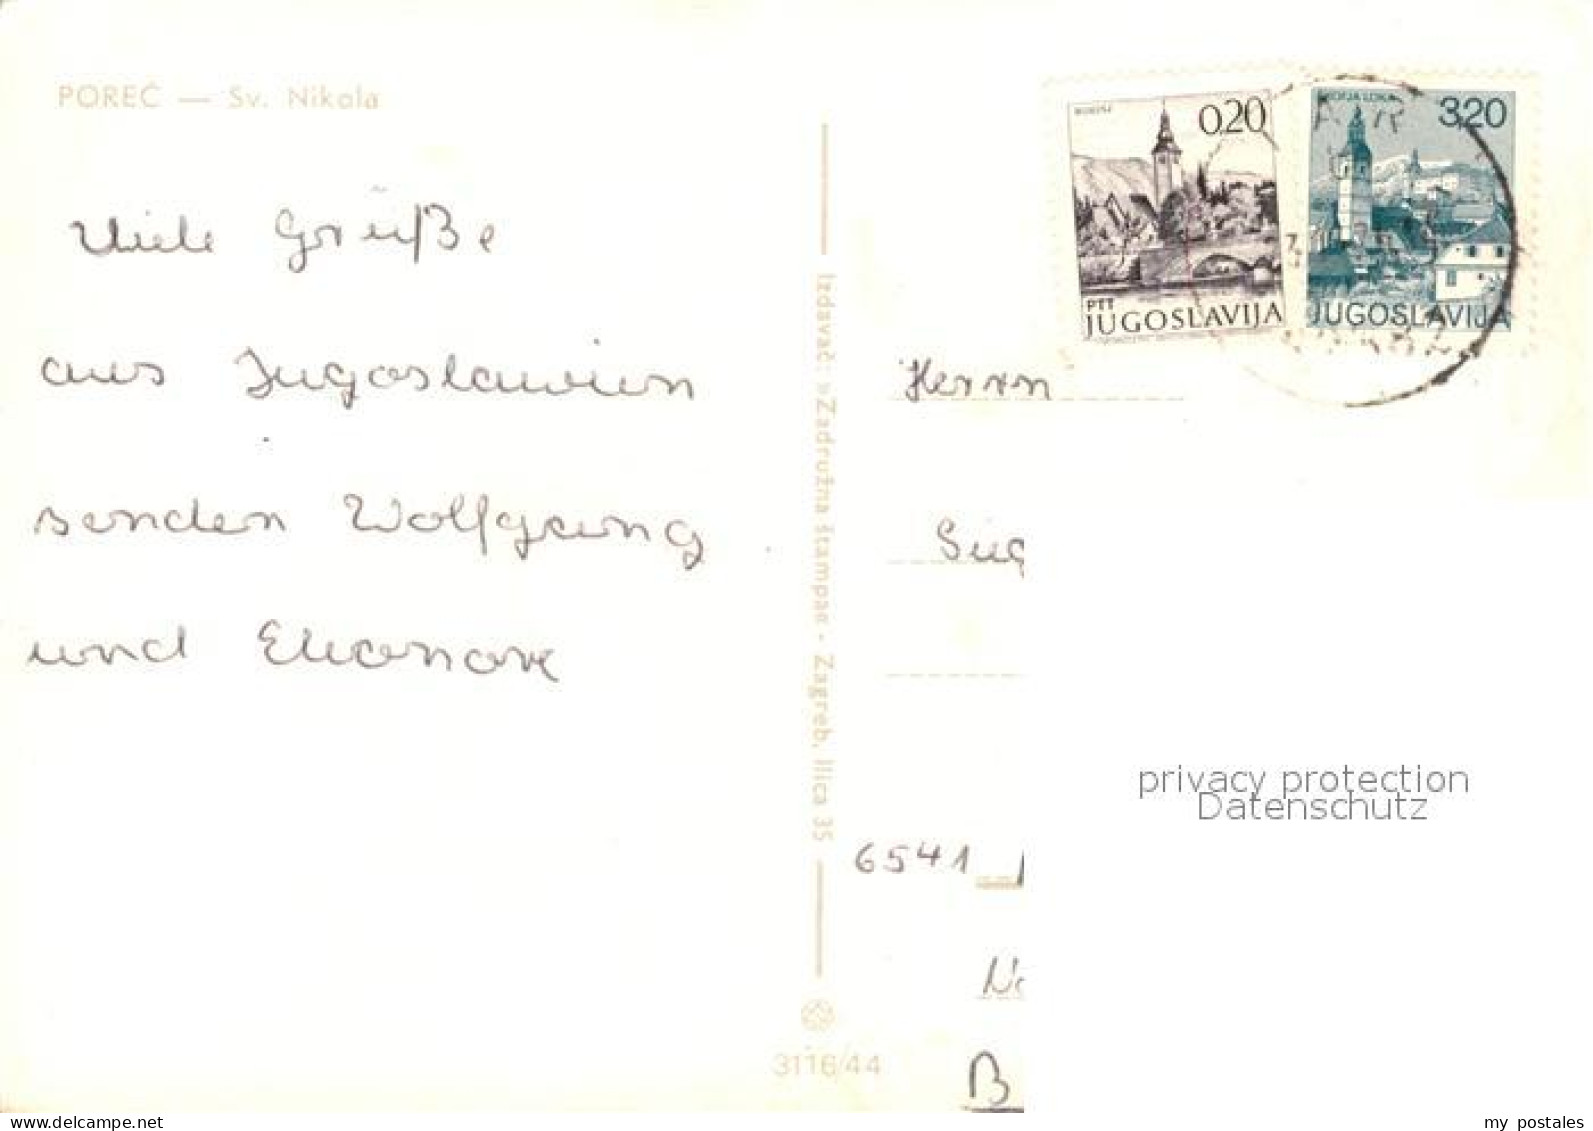 POREČ — Sv. Nikola
Viele Grüße
aus Jugoslawien
senden Wolfgang
und Eleonore
Izdavač: »Zadružna štampa« - Zagreb, Ilica 35
3116/44
0,20
PTT
JUGOSLAVIJA
ŠKOFJA LOKA
3,20
JUGOSLAVIJA
Herrn
6541
B
privacy protection
Datenschutz
my postales